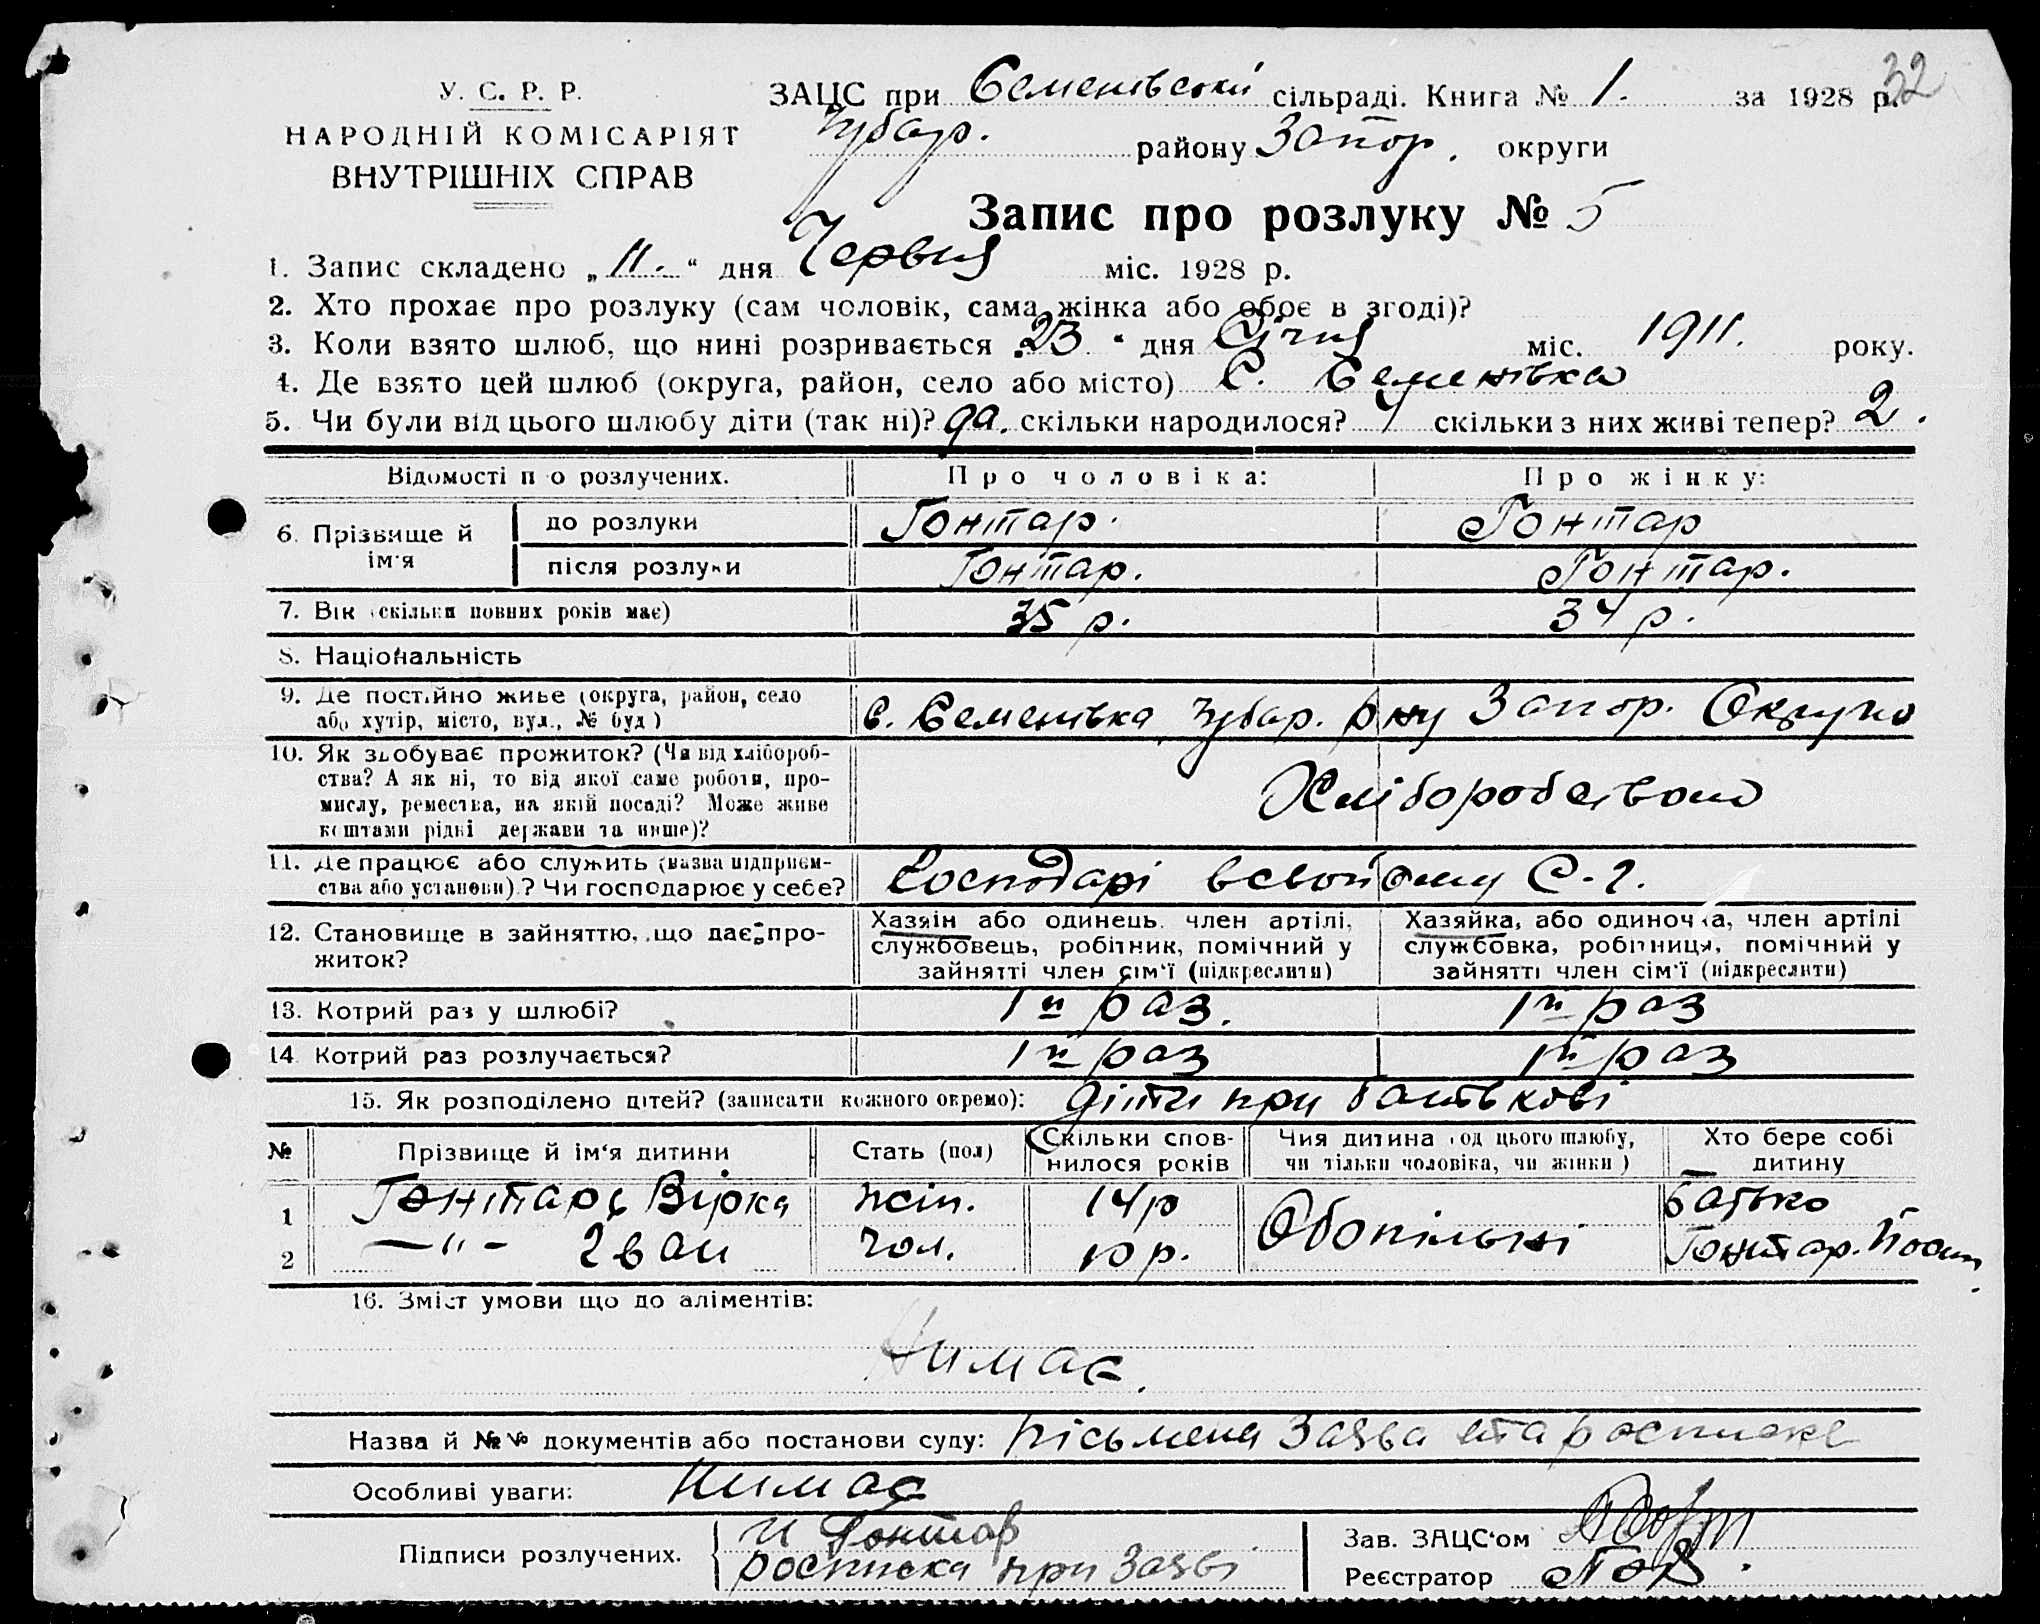 32
У. С. Р. Р.
НАРОДНІЙ КОМІСАРІЯТ
ВНУТРІШНІХ СПРАВ
ЗАЦС при Семенівській сільраді. Книга № 1. за 1928 р.
Чубар. району Запор. округи
Запис про розлуку № 5
1. Запис складено „11.“ дня Червня міс. 1928 р.
2. Хто прохає про розлуку (сам чоловік, сама жінка або обоє в згоді)?
3. Коли взято шлюб, що нині розривається „23“ дня Січня міс. 1911. року.
4. Де взято цей шлюб (округа, район, село або місто) С. Семенівка
5. Чи були від цього шлюбу діти (так ні)? да. скільки народилося? 4 скільки з них живі тепер? 2.
Відомості про розлучених. Про чоловіка: Про жінку:
6. Прізвище й ім'я до розлуки Гонтар. Гонтар
після розлуки Гонтар. Гонтар.
7. Вік (скільки повних років має) 35 р. 34 р.
8. Національність
9. Де постійно живе (округа, район, село
або хутір, місто, вул., № буд) С. Семенівка Чубар. р-ну Запор. Округи
10. Як здобуває прожиток? (Чи від хлібороб-
ства? А як ні, то від якої саме роботи, про-
мислу, ремества, на якій посаді? Може живе
коштами рідні держави та инше)? Хліборобством
11. Де працює або служить (назва підприєм-
ства або установи)? Чи господарює у себе? Господарі всвойому С.-г.
12. Становище в зайняттю, що дає про-
житок?
Хазяін або одинець. член артілі,
службовець, робітник, помічний у
зайнятті член сім'ї (підкреслити)
Хазяйка, або одиночка, член артілі
службовка, робітниця, помічний у
зайнятті член сім'ї (підкреслити)
13. Котрий раз у шлюбі? 1й раз. 1й раз
14. Котрий раз розлучається? 1й раз 1й раз
15. Як розподілено дітей? (записати кожного окремо): діти при батькові
№ Прізвище й ім'я дитини Стать (пол) Скільки спов-
нилося років Чия дитина (од цього шлюбу,
чи тільки чоловіка, чи жінки) Хто бере собі
дитину
1 Гонтарь Вірка жін. 14р Обопільні Батько
2 —"— Іван чол. 10 р. Гонтар.
16. Зміст умови що до аліментів:
Нимає.
Назва й №№ документів або постанови суду: Пісьмена Заява
Особливі уваги: Нимає
Підписи розлучених. И Гонтар
росписка при Заяві
Зав. ЗАЦС'ом
Реєстратор